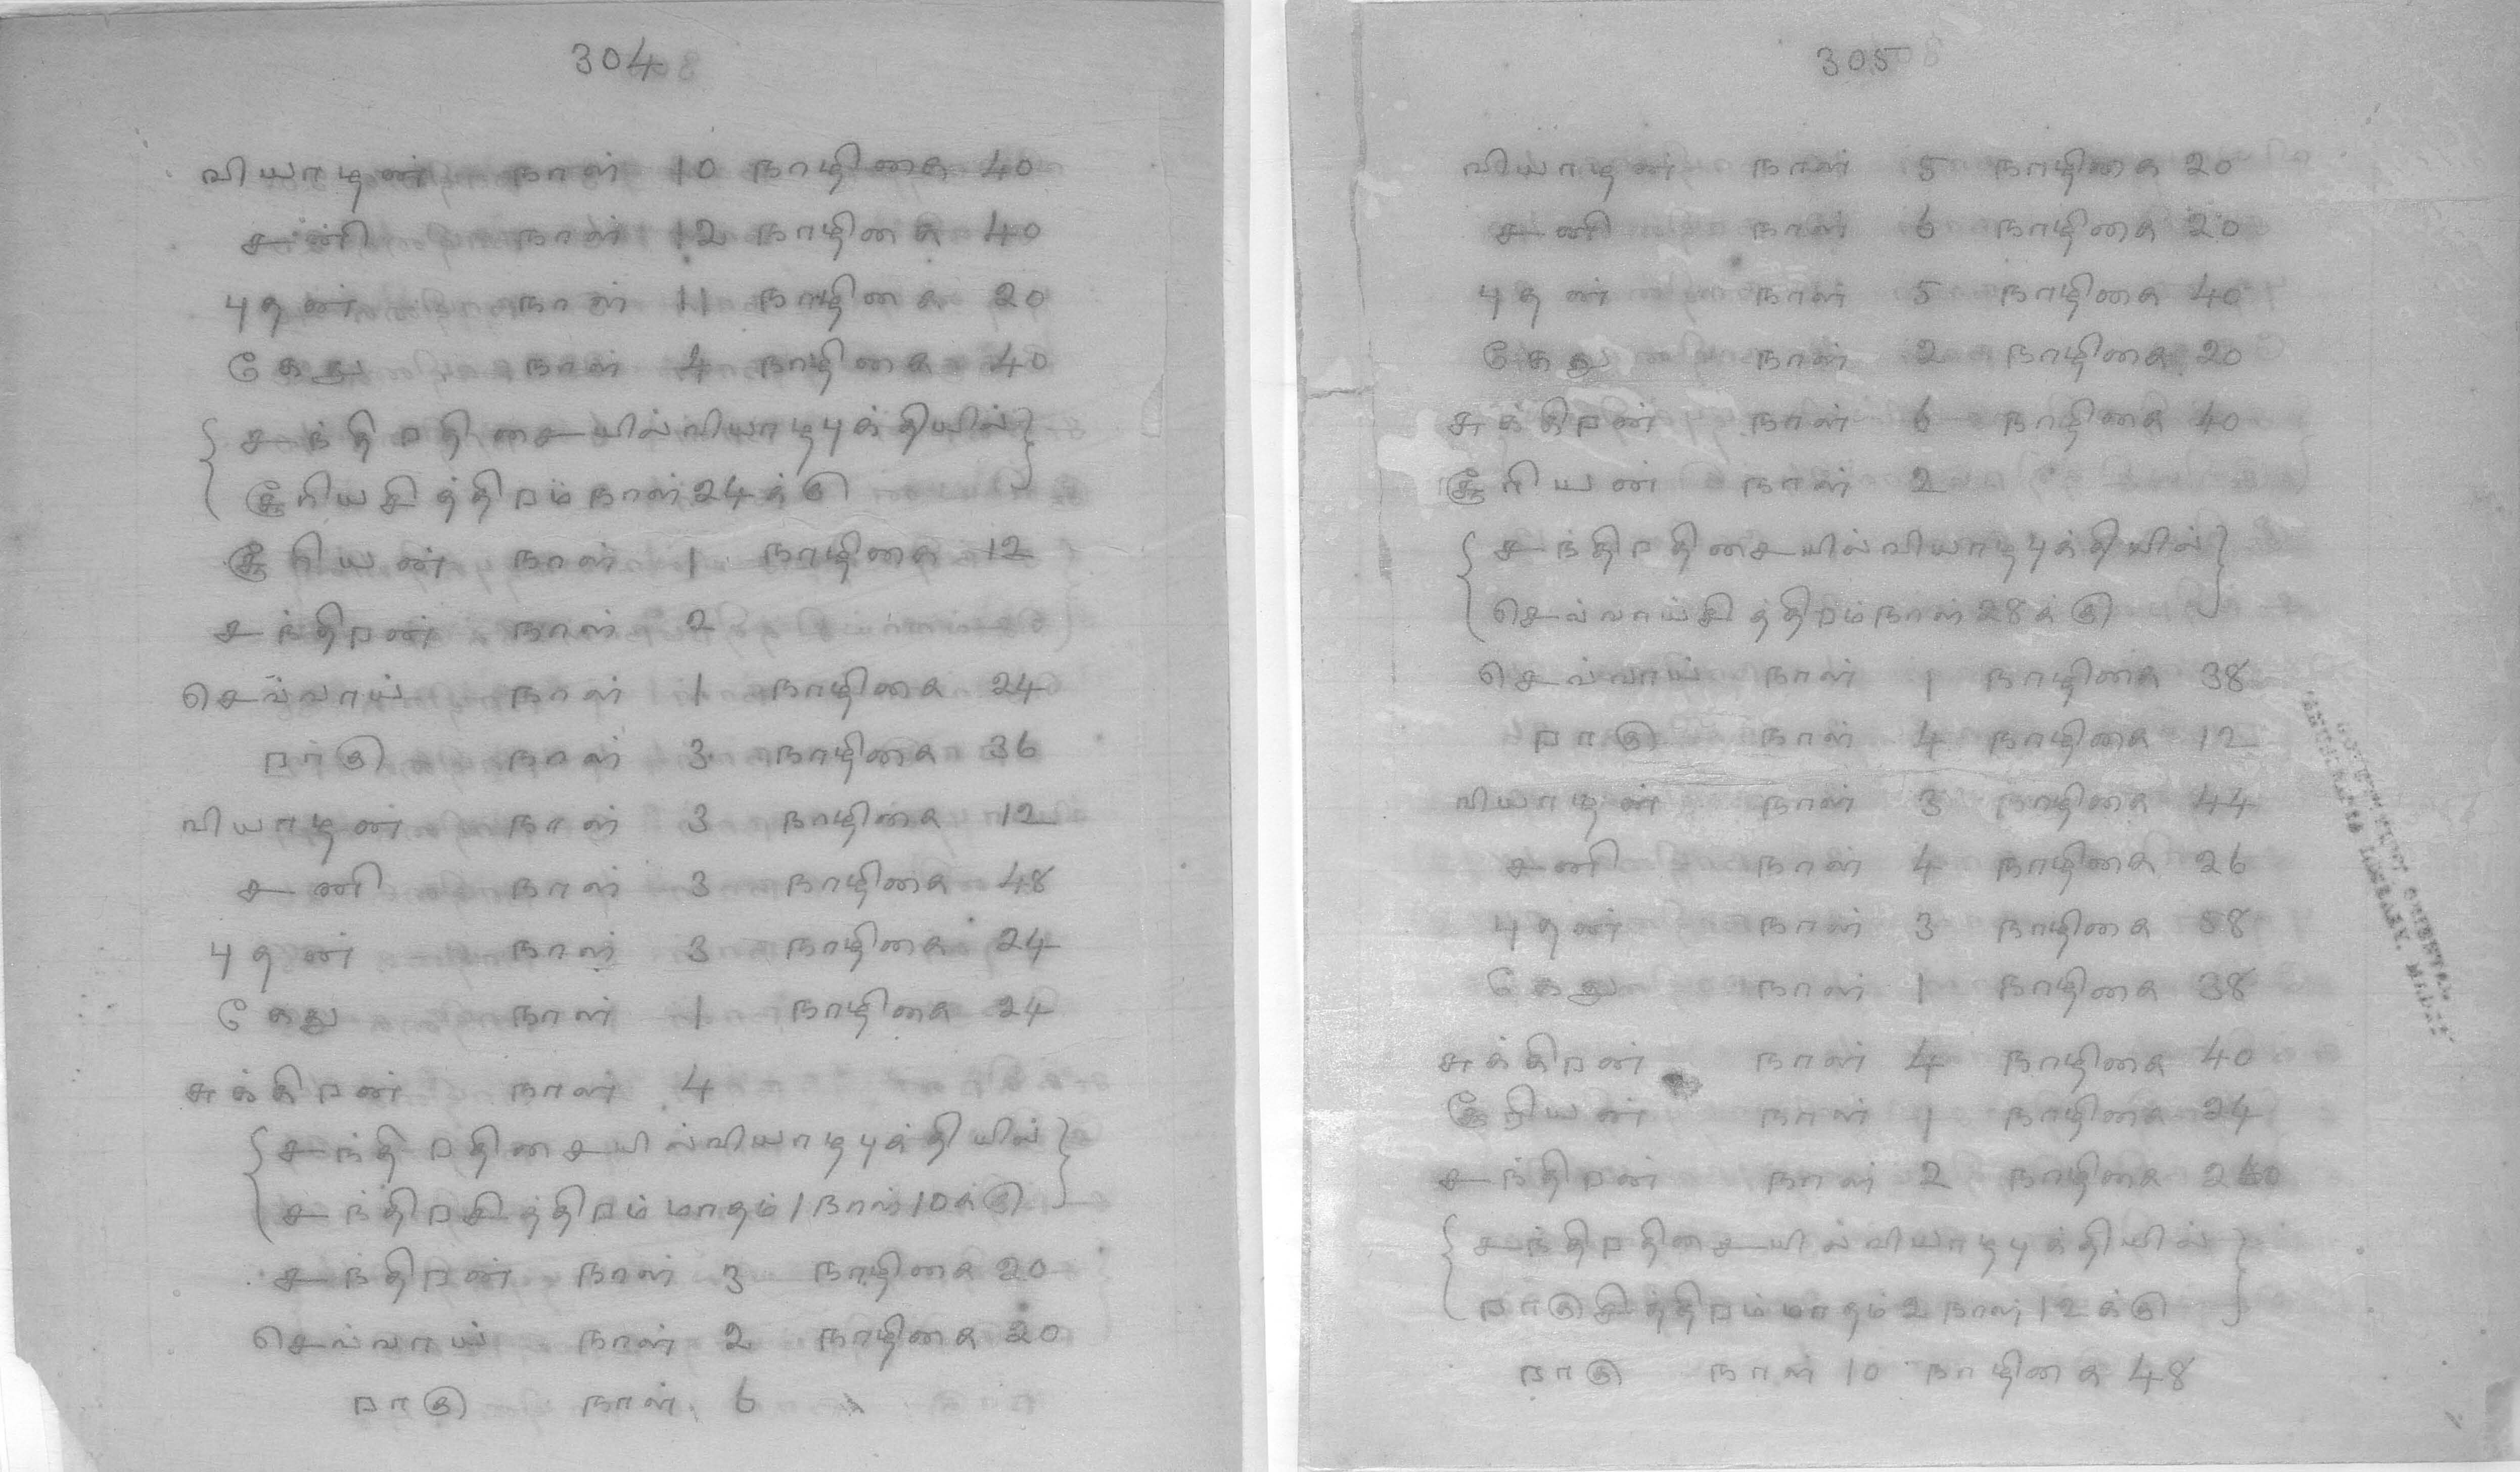 304
வியாழன் நாள் 10 நாழிகை 40
சனி நாள் 12 நாழிகை 40
புதன் நாள் 11 நாழிகை 20
கேது நாள் 4 நாழிகை 40
{சந்திரதிசையில்வியாழபுக்தியில்}
சூரியசித்திரம்நாள்24க்கு
சூரியன் நாள் 1 நாழிகை 12
சந்திரன் நாள் 2
செவ்வாய் நாள் 1 நாழிகை 24
ராகு நாள் 3 நாழிகை 36
வியாழன் நாள் 3 நாழிகை 12
சனி நாள் 3 நாழிகை 48
புதன் நாள் 3 நாழிகை 24
கேது நாள் 1 நாழிகை 24
சுக்கிரன் நாள் 4
{சந்திரதிசையில்வியாழபுக்தியில்}
சந்திரசித்திரம்மாதம்1நாள்10க்கு
சந்திரன் நாள் 3 நாழிகை 20
செவ்வாய் நாள் 2 நாழிகை 20
ராகு நாள் 6
305
வியாழன் நாள் 5 நாழிகை 20
சனி நாள் 6 நாழிகை 20
புதன் நாள் 5 நாழிகை 40
கேது நாள் 2 நாழிகை 20
சுக்கிரன் நாள் 6 நாழிகை 40
சூரியன் நாள் 2
{சந்திரதிசையில்வியாழபுக்தியில்}
செவ்வாய்சித்திரம்நாள்28க்கு
செவ்வாய் நாள் 1 நாழிகை 38
ராகு நாள் 4 நாழிகை 12
வியாழன் நாள் 3 நாழிகை 44
சனி நாள் 4 நாழிகை 26
புதன் நாள் 3 நாழிகை 58
கேது நாள் 1 நாழிகை 38
சுக்கிரன் நாள் 4 நாழிகை 40
சூரியன் நாள் 1 நாழிகை 24
சந்திரன் நாள் 2 நாழிகை
{சந்திரதிசையில்வியாழபுக்தியில்}
ராகுசித்திரம்மாதம்2நாள்12க்கு
ராகு நாள் 10 நாழிகை 48